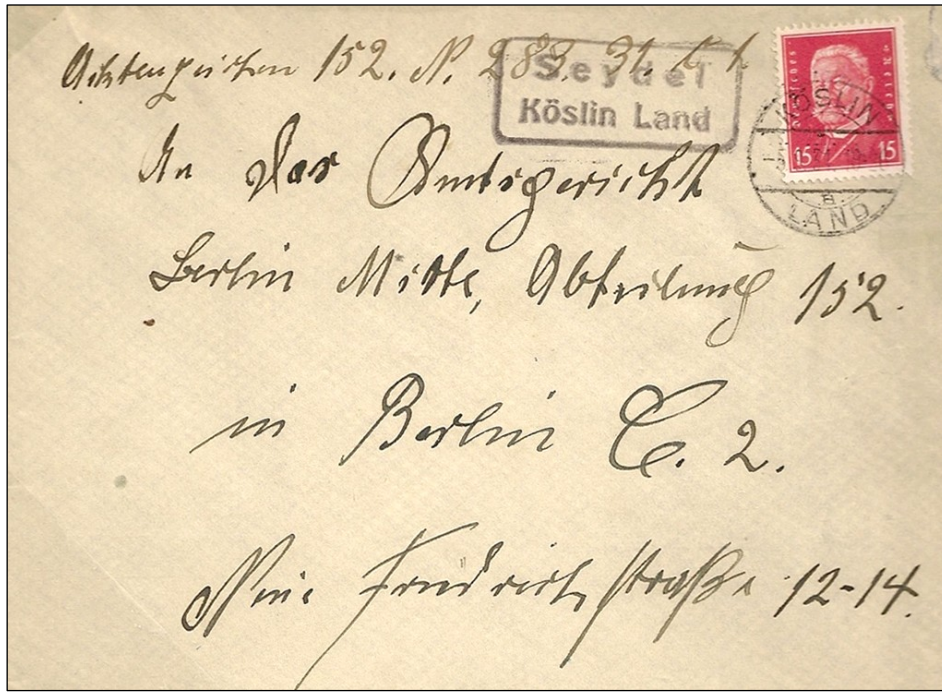 Aktenzeichen 152. N. 283. 31.
Seydel
Köslin Land
15 15
KÖSLIN
LAND
a
An das Amtsgericht
Berlin Mitte, Abteilung 152.
in Berlin C. 2.
Neue Friedrichstraße 12-14.